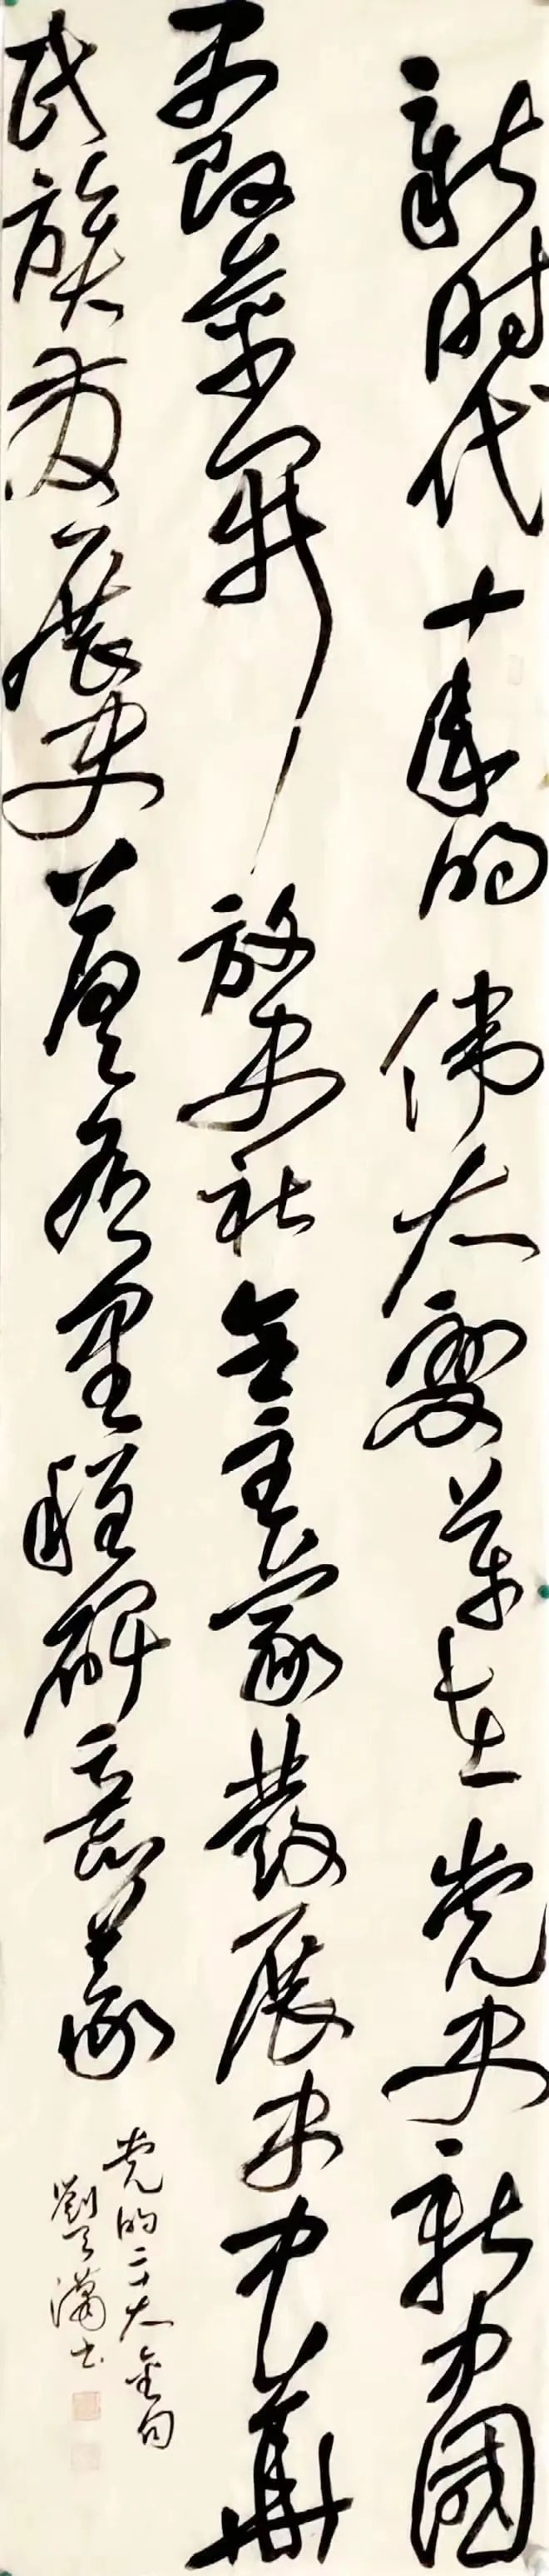 新时代十年的伟大变革在党史新中国
史改革开放史社会主义發展史中華
民族发展史具有里程碑意義
党的二十大金句
劉天潇书